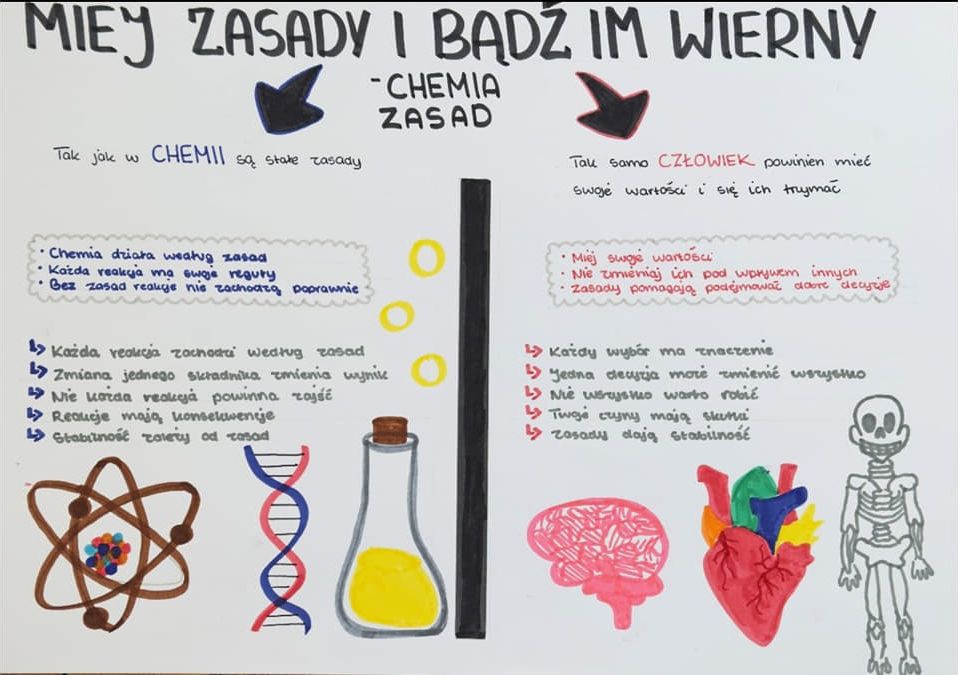 MIEJ ZASADY I BĄDŹ IM WIERNY
-CHEMIA
ZASAD
Tak jak w CHEMII są stałe zasady
Tak samo CZŁOWIEK powinien mieć
swoje wartości i się ich trzymać
• Chemia działa według zasad
• Każda reakcja ma swoje reguły
• Bez zasad reakcje nie zachodzą poprawnie
• Miej swoje wartości
• Nie zmieniaj ich pod wpływem innych
• Zasady pomagają podejmować dobre decyzje
Każda reakcja zachodzi według zasad
Zmiana jednego składnika zmienia wynik
Nie każda reakcja powinna zajść
Reakcje mają konsekwencje
Stabilność zależy od zasad
Każdy wybór ma znaczenie
Jedna decyzja może zmienić wszystko
Nie wszystko warto robić
Twoje czyny mają skutki
Zasady dają stabilność